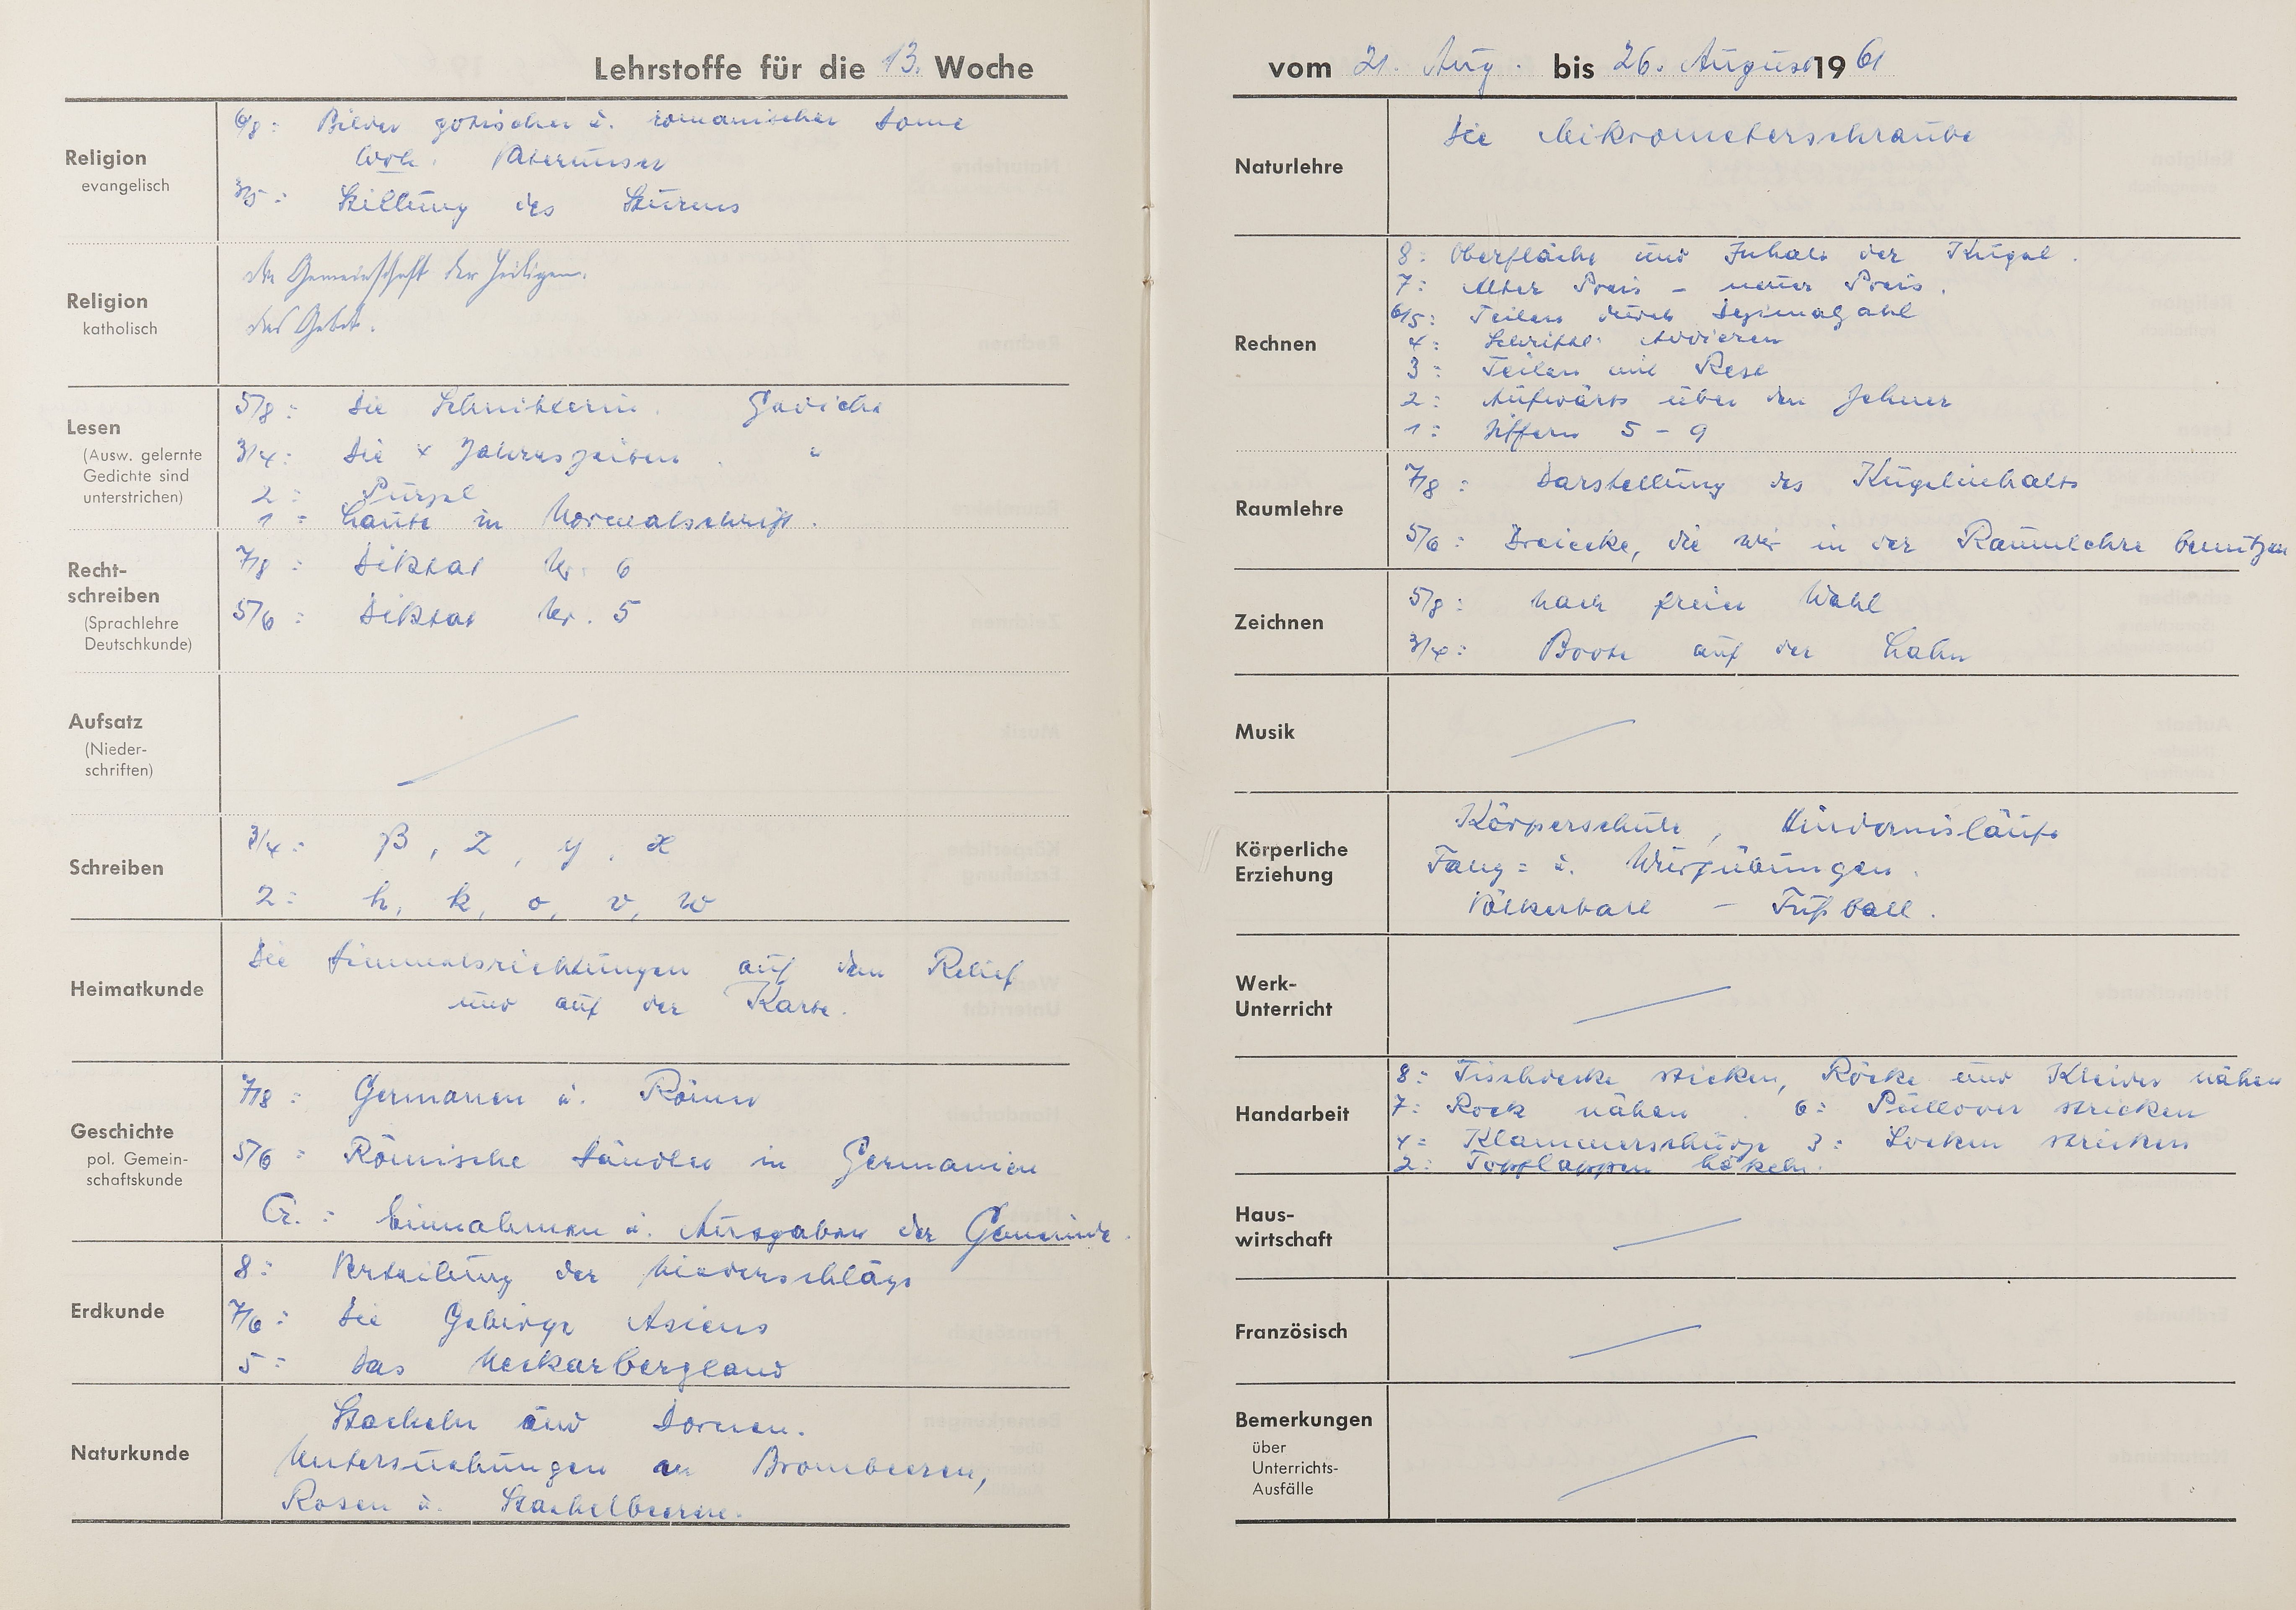 Lehrstoffe für die 13. Woche
Religion
evangelisch
6/8: Bilder gotischer u. romanischer Dome
Wdh. Vaterunser
3/5: Stillung des Sturms
Religion
katholisch
Die Gemeinschaft der Heiligen.
Das Gebet.
Lesen
(Ausw. gelernte
Gedichte sind
unterstrichen)
5/8: Die Schnitterin. Gedicht
3/4: Die 4 Jahreszeiten. "
2: Purzel
1: Laute in Normalschrift.
Recht-
schreiben
(Sprachlehre
Deutschkunde)
7/8: Diktat Nr. 6
5/6: Diktat Nr. 5
Aufsatz
(Nieder-
schriften)
Schreiben
3/4: ß, z, y, x
2: h, k, o, v, w
Heimatkunde
Die Himmelsrichtungen auf dem Relief
und auf der Karte.
Geschichte
pol. Gemein-
schaftskunde
7/8: Germanen u. Römer
5/6: Römische Händler in Germanien
Einnahmen u. Ausgaben der Gemeinde.
Erdkunde
8: Verteilung der Niederschläge
7/6: Die Gebirge Asiens
5: Das Neckarbergland
Naturkunde
Stacheln und Dornen.
Untersuchungen an Brombeeren,
Rosen u. Stachelbeeren.
vom 21. Aug. bis 26. August 1961
Naturlehre
Die Mikrometerschraube
Rechnen
8: Oberfläche und Inhalt der Kugel.
7: Alter Preis - neuer Preis.
6/5: Teilen durch Dezimalzahl
4: Schriftl. Addieren
3: Teilen mit Rest
2: Aufwärts über den Zehner
1: Ziffern 5 - 9
Raumlehre
7/8: Darstellung des Kugelinhalts
5/6: Dreiecke, die wir in der Raumlehre benützen
Zeichnen
5/8: Nach freier Wahl
3/4: Boote auf der Lahn
Musik
Körperliche
Erziehung
Körperschule, Hindernisläufe
Fang= u. Wurfübungen.
Völkerball - Fußball.
Werk-
Unterricht
Handarbeit
8: Tischdecke sticken, Röcke und Kleider nähen
7: Rock nähen. 6: Pullover stricken
4: Klammerschürze 3: Socken stricken
2: Topflappen häkeln.
Haus-
wirtschaft
Französisch
Bemerkungen
über
Unterrichts-
Ausfälle